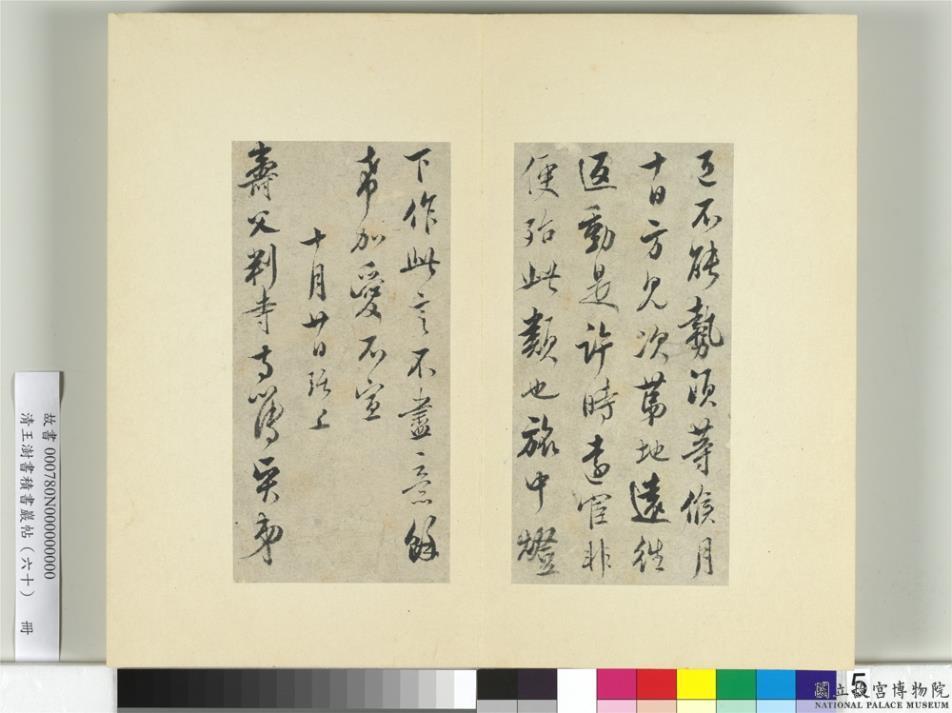 不能勢須等候月
十日方見次第地遠往
返動是許時遠宦非
便殆此類也旅中燈
下作此言不盡意餘
希加愛不宣
十月廿日 上
壽父判寺寺簿賢弟
故書000780N000000000
清王澍書積書巖帖(六十) 冊
5
國立故宮博物院
NATIONAL PALACE MUSEUM